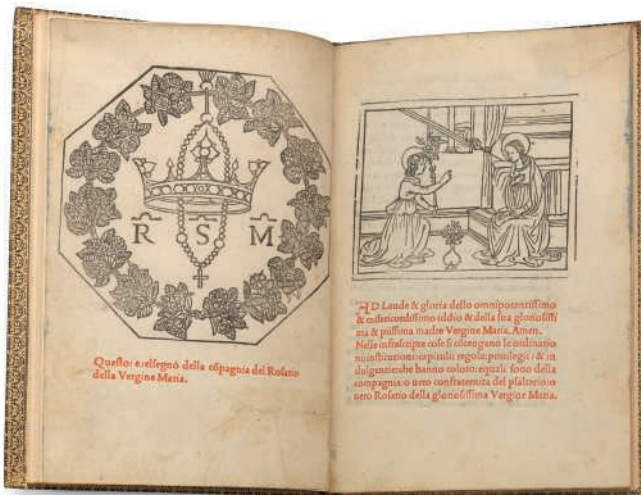 R S M
Questo: e: elsegno della cōpagnia del Rosario
della Vergine Maria.
AD Laude & gloria dello omnipotentissimo
& misericordissimo iddio & della sua gloriosissi
ma & piissima madre Vergine Maria. Amen.
Nelle infrascripte cose si cōtengano le ordinatio
ni: institutioni: capituli: regole: priuilegii: & in
dulgentie: che hanno coloro: equali sono della
compagnia: o uero confraternita del psalterio: o
uero Rosario della gloriosissima Vergine Maria.